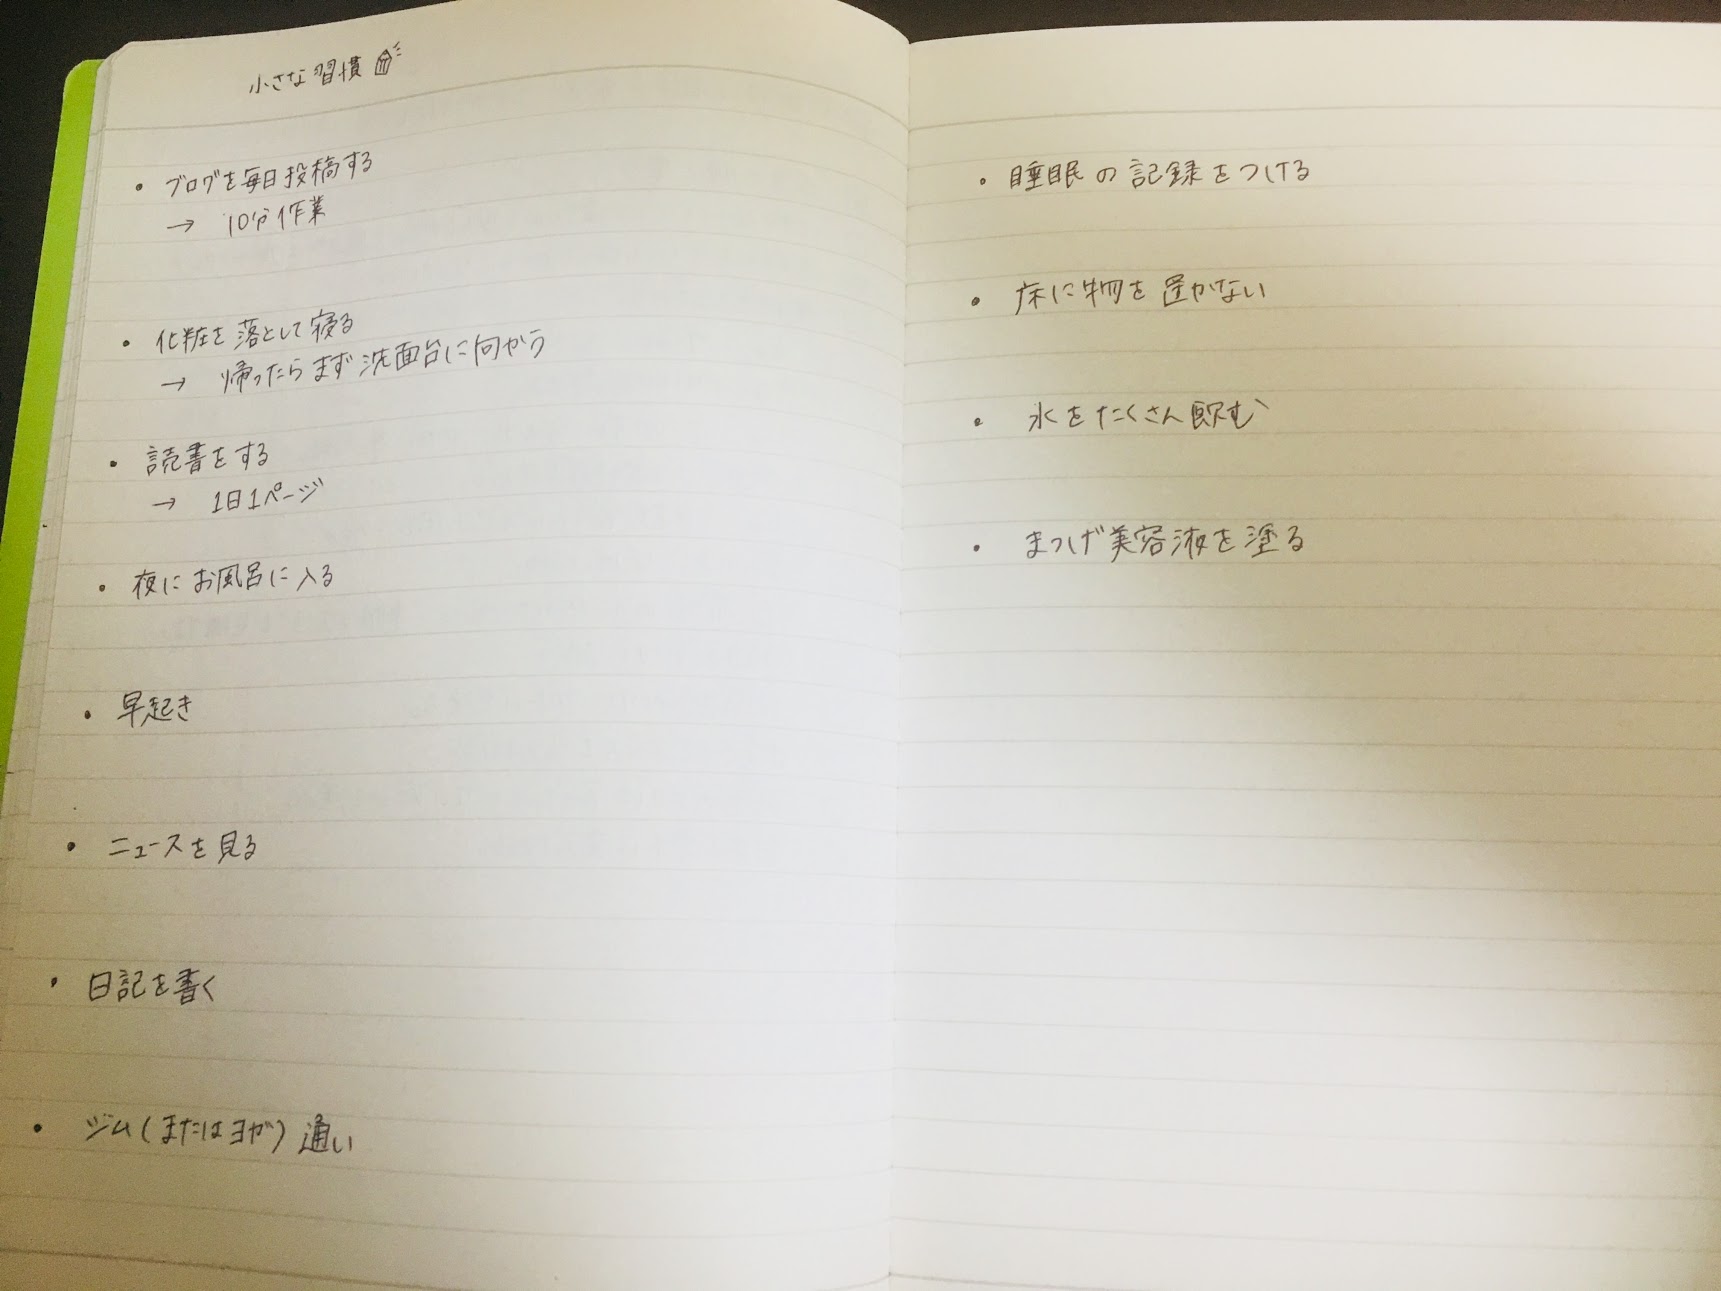 小さな習慣
・ブログを毎日投稿する
→ 10分作業
・化粧を落として寝る
→ 帰ったらまず洗面台に向かう
・読書をする
→ 1日1ページ
・夜にお風呂に入る
・早起き
・ニュースを見る
・日記を書く
・ジム(またはヨガ)通い
・睡眠の記録をつける
・床に物を置かない
・水をたくさん飲む
・まつげ美容液を塗る